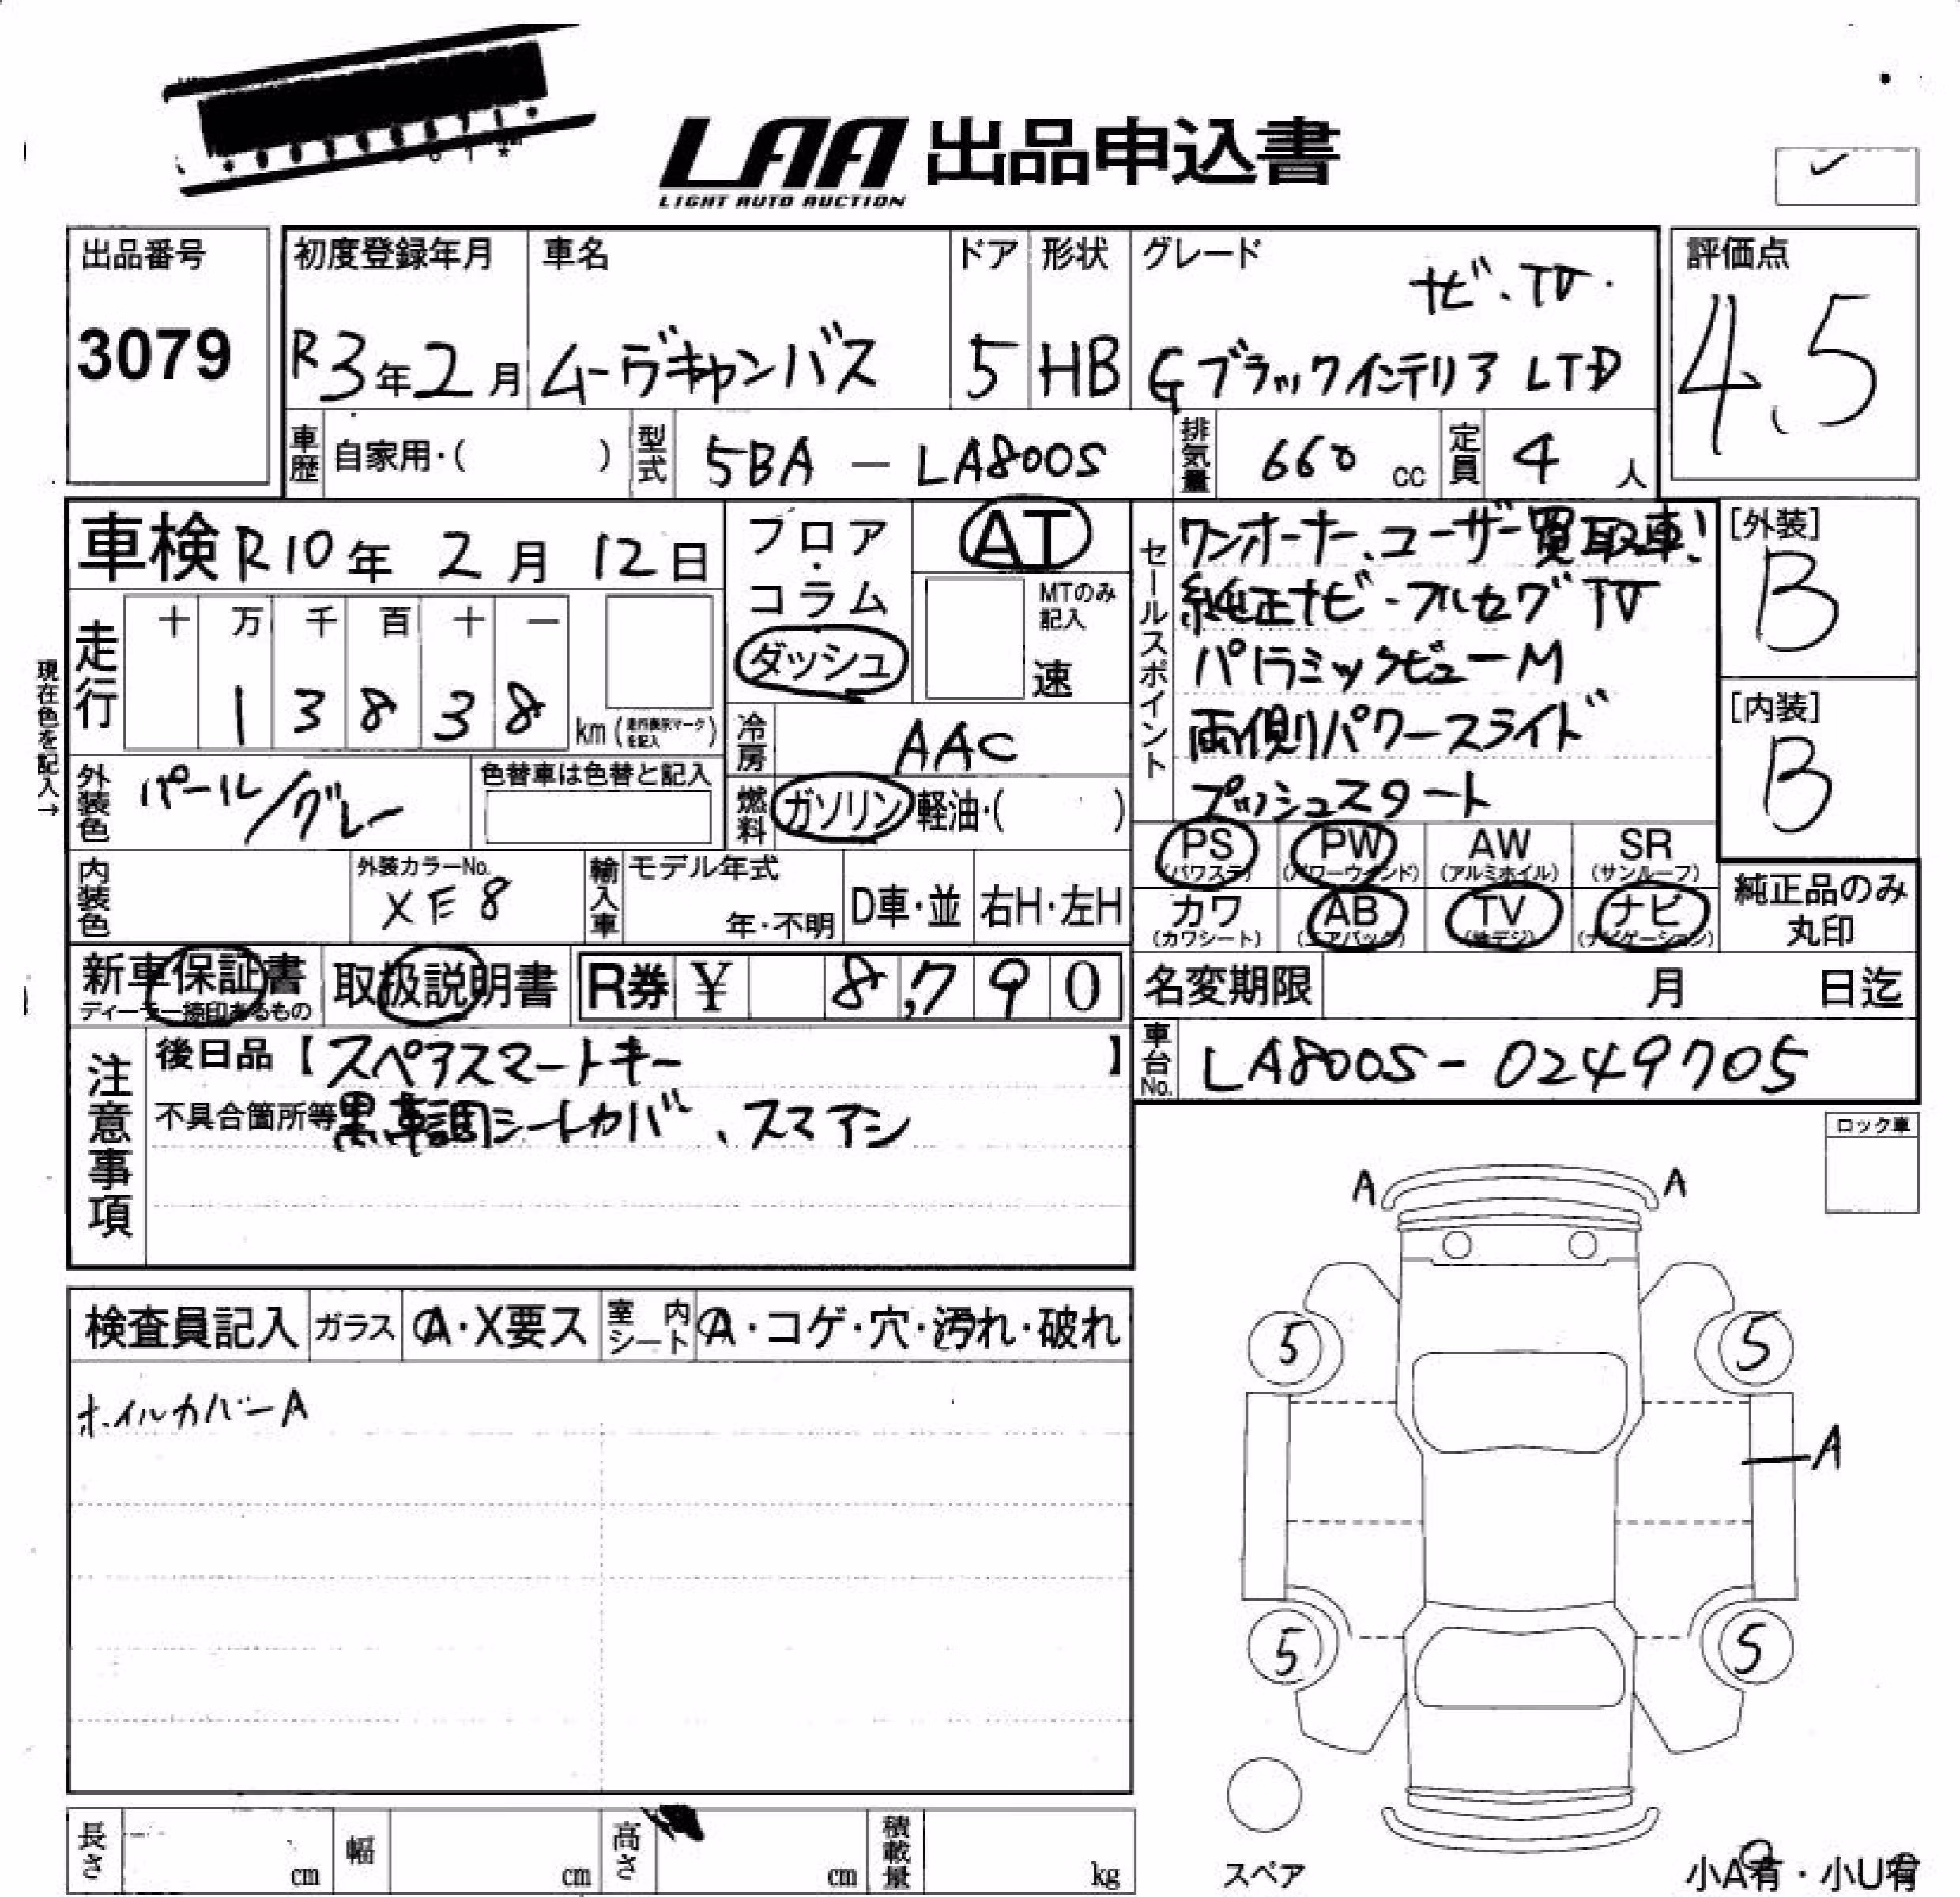 LAA 出品申込書
LIGHT AUTO AUCTION
出品番号
3079
初度登録年月
R3年2月
車名
ムーヴキャンバス
ドア
5
形状
HB
グレード
ナビ、TV.
Gブラックインテリア LTD
評価点
4.5
車歴 自家用・( )
型式 5BA - LA800S
排気量 660 cc
定員 4 人
車検 R10年 2月 12日
フロア・コラム・ダッシュ
AT
MTのみ記入
速
セールスポイント
ワンオーナー、ユーザー買取車!
純正ナビ・フルセグTV
パノラミックビューM
両側パワースライド
プッシュスタート
[外装]
B
[内装]
B
現在色を記入→
走行
十 万 千 百 十 一
1 3 8 3 8 km (走行表示マークを記入)
冷房 AAC
外装色 パール/グレー
色替車は色替と記入
燃料 ガソリン 軽油・( )
PS (パワステ) PW (パワーウインド) AW (アルミホイル) SR (サンルーフ)
カワ (カワシート) AB (エアバック) TV (地デジ) ナビ (ナビゲーション)
純正品のみ丸印
内装色
外装カラーNo.
XE8
輸入車
モデル年式
年・不明
D車・並
右H・左H
新車保証書
ディーラー捺印あるもの
取扱説明書
R券 ¥ 8,790
名変期限 月 日迄
車台No. LA800S-0249705
注意事項
後日品【スペアスマートキー】
不具合箇所等 黒革調シートカバー、スマアシ
ロック車
A A
検査員記入 ガラス A・X要ス 室内シート A・コゲ・穴・汚れ・破れ
ホイルカバーA
5 5
A
5 5
スペア
長さ cm 幅 cm 高さ cm 積載量 kg
小A有・小U有